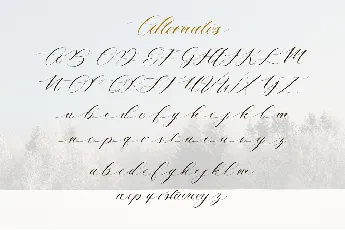 Alternates
A B C D E F G H I J K L M
N O P Q R S T U V W X Y Z
a b c d e f g h i j k l m
n o p q r s t u v w x y z
a b c d e f g h i j k l m